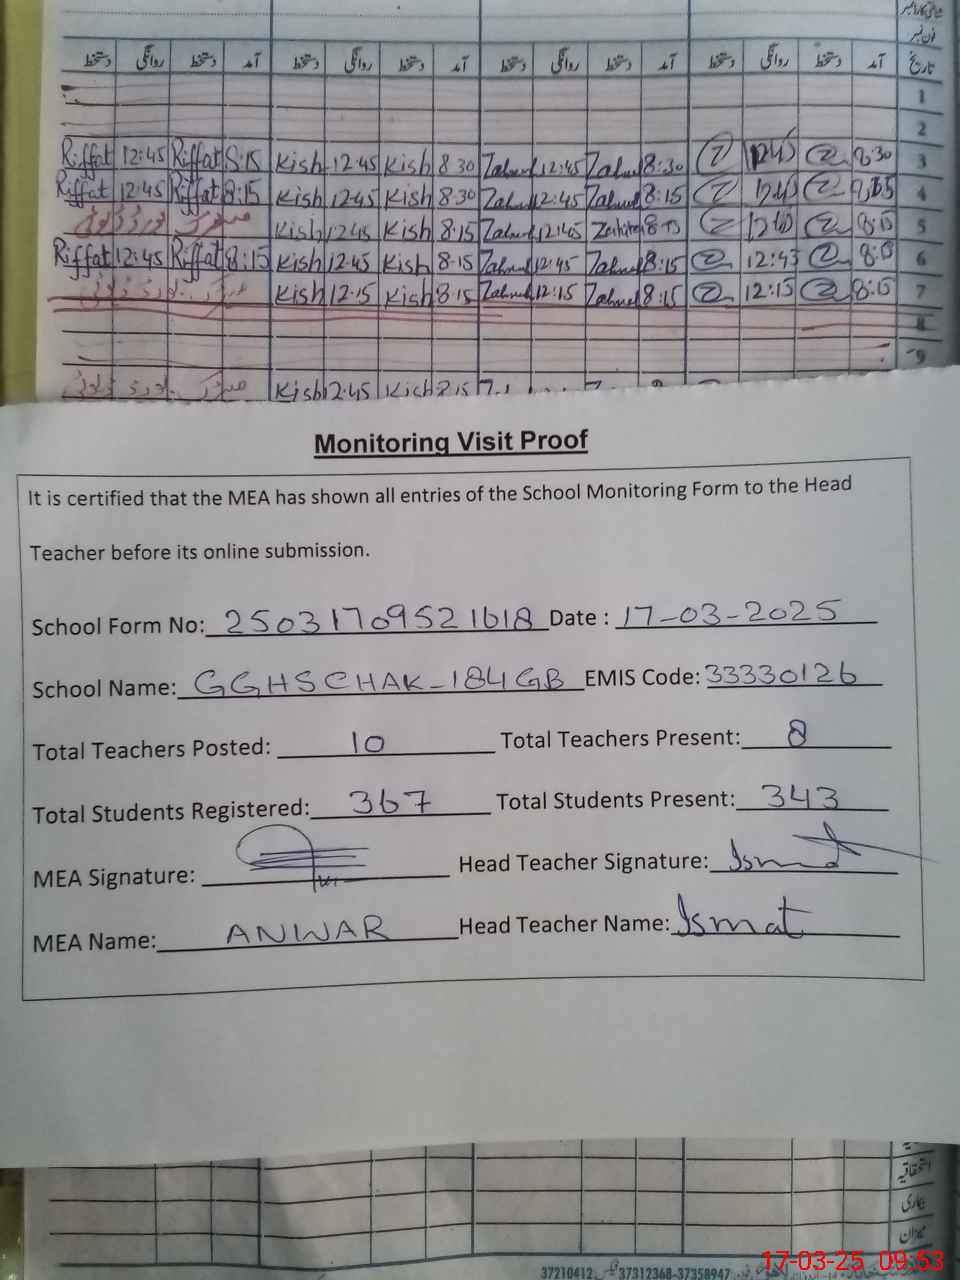 فون نمبر
دستخط روانگی دستخط آمد دستخط روانگی دستخط آمد دستخط روانگی دستخط آمد دستخط روانگی دستخط آمد تاریخ
1
2
Riffat 12:45 Riffat 8:15 Kish 12:45 Kish 8 30 Zahmd 12:45 8:30 3
Riffat 12:45 Riffat 8:15 Kish 12:45 Kish 8:30 12:45 8:15 4
Kish 1245 Kish 8:15 12:45 5
Riffat 12:45 Riffat 8:15 Kish 12:45 Kish 8:15 12:45 8:15 12:43 6
Kish 12:15 Kish 8:15 12:15 8:15 12:15 8:15 7
8
9
Kish 12:45 Kish
Monitoring Visit Proof
It is certified that the MEA has shown all entries of the School Monitoring Form to the Head
Teacher before its online submission.
School Form No: 25031709521618 Date : 17-03-2025
School Name: GGHS CHAK-184 GB EMIS Code: 33330126
Total Teachers Posted: 10 Total Teachers Present: 8
Total Students Registered: 367 Total Students Present: 343
MEA Signature: Head Teacher Signature: Ismat
MEA Name: ANWAR Head Teacher Name: Ismat
اتفاقیہ
بیماری
میزان
37210412 37312368-37358947
17-03-25 09:53